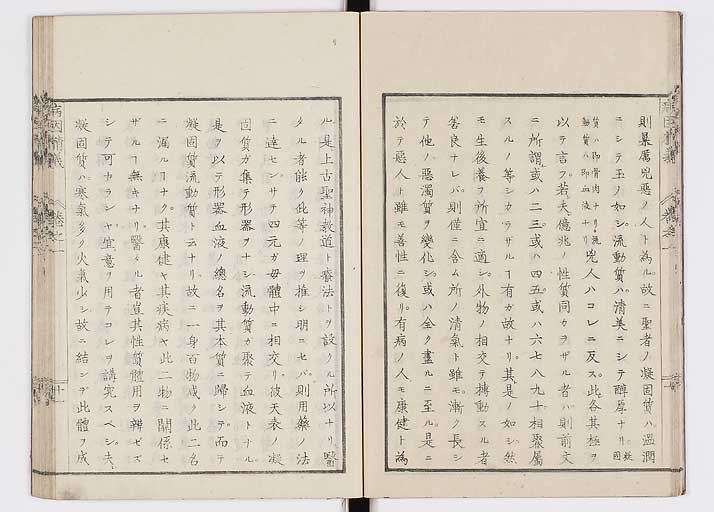 則暴厲兇惡ノ人ト為ル故ニ聖者ノ凝固質ハ溫潤
ニシテ玉ノ如シ流動質ハ清美ニシテ醇厚ナリ凝固
質ハ即骨肉ナリ流動質ハ即血液ナリ兇人ハコレニ反ス此各其極ヲ
以テ言フ若夫億兆ノ性質同カラザル者ハ則前文
ニ所謂或ハ二三或ハ四五或ハ六七八九十相聚屬
スルノ等シカラザルヿ有ガ故ナリ其是ノ如シ然
モ生後養フ所宜ニ適シ外物ノ相交テ摶動スル者
善良ナレバ則僅ニ含ム所ノ清氣ト雖モ漸ク長シ
テ他ノ惡濁質ヲ變化シ或ハ全ク盡ルニ至ル是ニ
於テ惡人ト雖モ善性ニ復リ有病ノ人モ康健ト為
ル是上古聖神教道ト療法トヲ設クル所以ナリ醫
タル者能ク此等ノ理ヲ推シ明ニセバ則用藥ノ法
ニ達セン サテ四元ガ母體中ニ相交リ彼天泰ノ凝
固質ガ集テ形器ヲナシ流動質ガ聚テ血液トナル
是ヲ以テ形器血液ノ總名ヲ其本質ニ歸シテ而テ
凝固質流動質ト云ナリ故ニ一身百物咸ク此二名
ニ漏ルヿナク其康健ヤ其疾病ヤ此二物ニ關係セ
ザルヿ無キナリ醫タル者豈其性質體用ヲ辨ゼズ
シテ可カランヤ宜意ヲ用テコレヲ講究スベシ夫
凝固質ハ寒氣多ク火氣少シ故ニ結ンデ此體ヲ成
病因精義
卷之一
十一